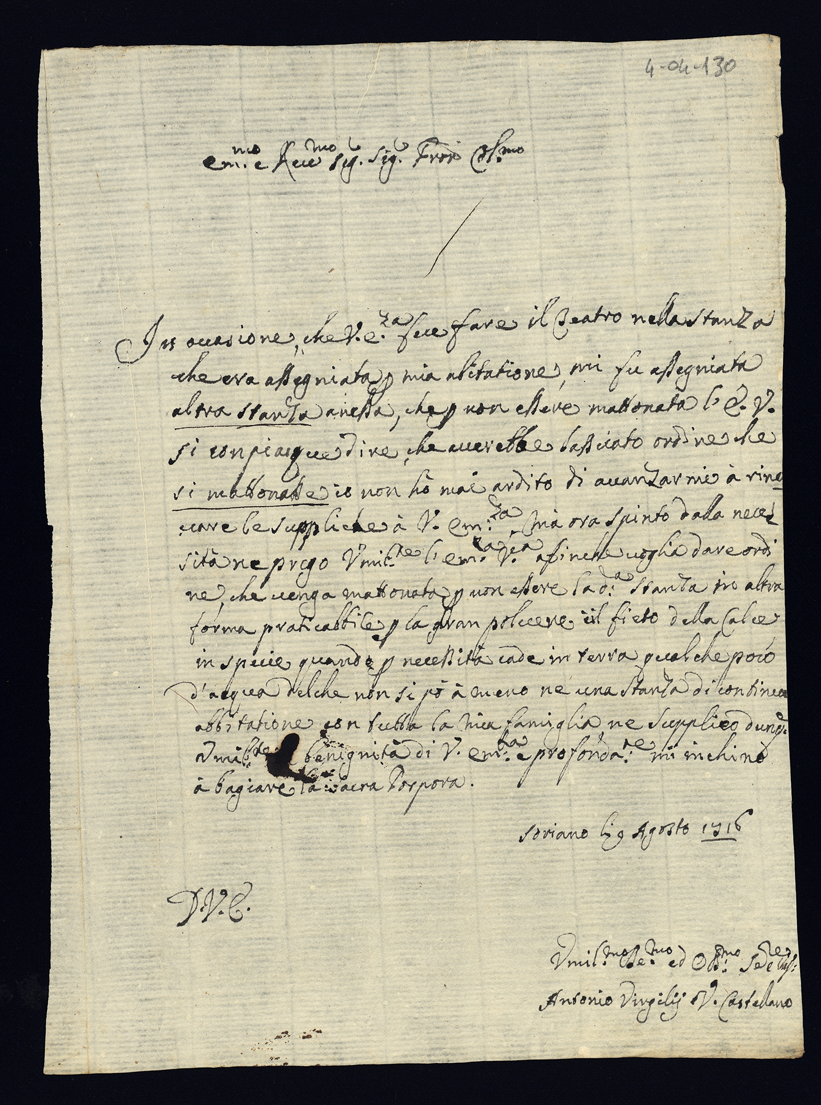 4-04-130
Em.mo e Re.mo Sig. Sig.r P.rone Col.mo
In occasione, che V. E.za fece fare il Teatro nella stanza
che era assegniata p mia abitatione, mi fu assegniata
altra stanza anessa, che p non essere mattonata l'E. V.
si conpiacque dire, che averebbe lassiato ordine che
si mattonasse io non hò mai ardito di avanzarmi à rino
vare le suppliche à V. Em.za, mà ora spinto dalla neces
sità ne prego Vmil.te l'em.za V.ra afinche voglia dare ordi
ne, che venga mattonata p non essere la d.a stanza in altra
forma praticabbile p la gran polvere, il fieto della Calce
in specie quando p necessità cade in terra qualche poco
d'acqua del che non si pò à meno ne una stanza di continua
abbitatione con tutta la mia famiglia ne supplico dunq.
Vmil.te benignità di V. em.za e profonda.te mi inchino
à bagiare la Sacra Porpora.
Soriano li 9 Agosto 1716
D. V. E.
Vmil.mo De.mo ed Obl.mo Se.re
Antonio Virgilij V. Castellano